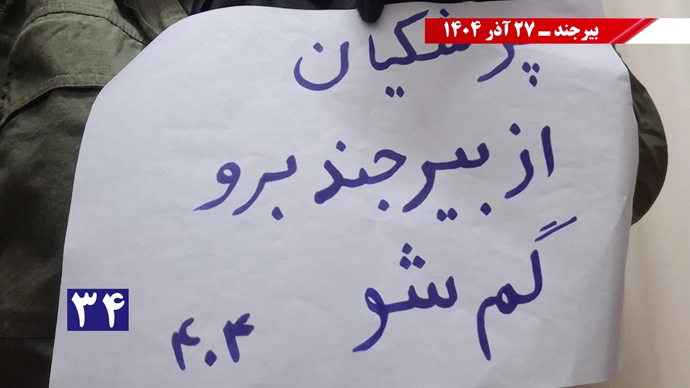 بیرجند ــ ۲۷ آذر ۱۴۰۴
پزشکیان
از بیرجند برو
گم شو
۴۰۴
۳۴